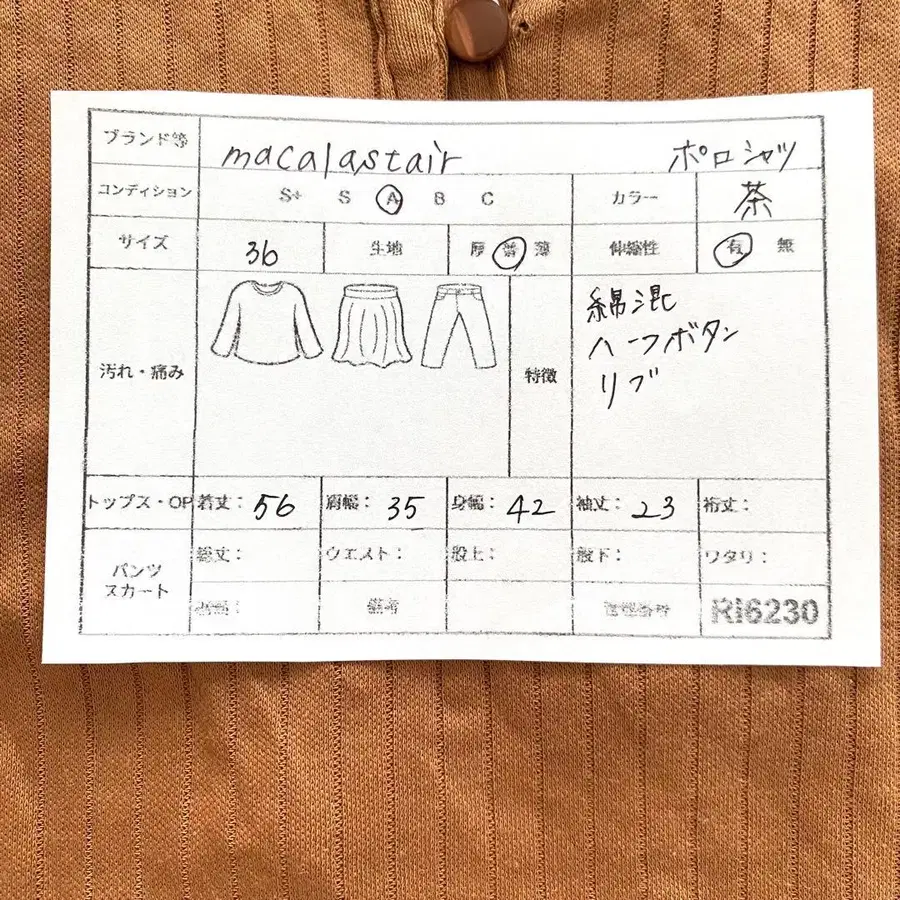 ブランド等 macalastair ポロシャツ
コンディション S+ S A B C カラー 茶
サイズ 36 生地 厚 普 薄 伸縮性 有 無
汚れ・痛み 特徴 綿混
ハーフボタン
リブ
トップス・OP 着丈: 56 肩幅: 35 身幅: 42 袖丈: 23 裄丈:
パンツ
スカート
総丈: ウエスト: 股上: 股下: ワタリ:
備考 管理番号 Ri6230